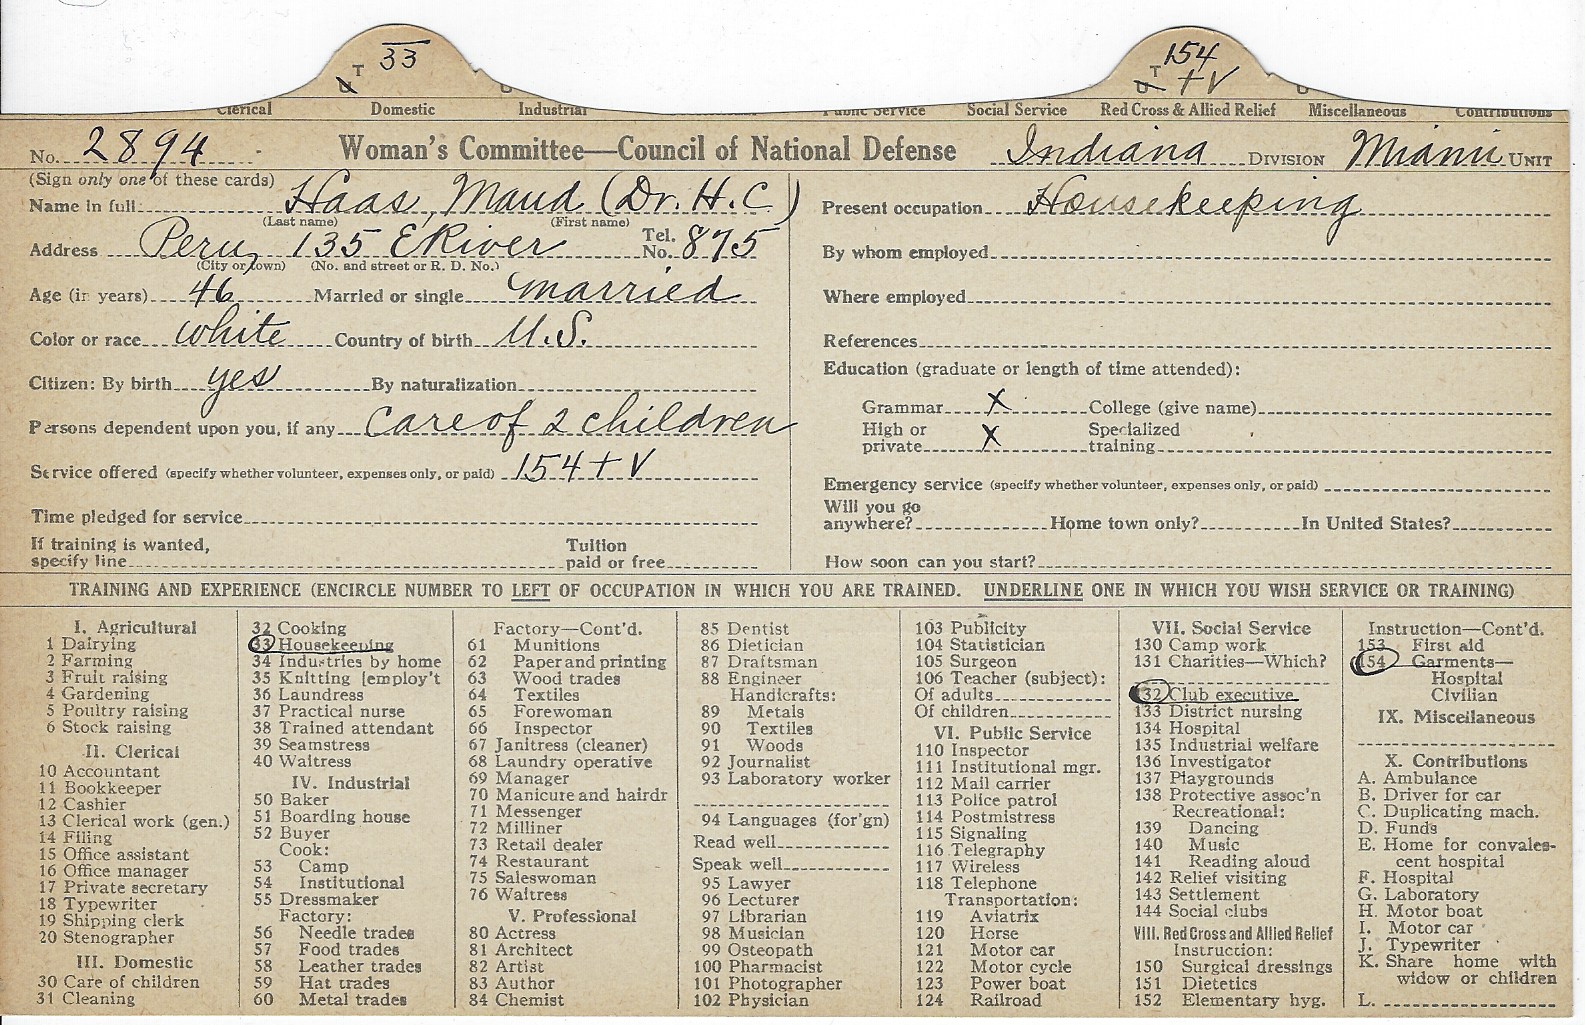 33
T
U
154
T
U
+ V
Clerical Domestic Industrial Public Service Social Service Red Cross & Allied Relief Miscellaneous Contributions
No. 2894 Woman's Committee—Council of National Defense Indiana DIVISION Miami UNIT
(Sign only one of these cards)
Name in full: Haas, Maud (Dr. H. C.)
(Last name) (First name)
Address Peru, 135 E River Tel. No. 875
(City or town) (No. and street or R. D. No.)
Age (in years) 46 Married or single married
Color or race white Country of birth U.S.
Citizen: By birth yes By naturalization
Persons dependent upon you, if any care of 2 children
Service offered (specify whether volunteer, expenses only, or paid) 154 + V
Time pledged for service
If training is wanted,
specify line Tuition paid or free
Present occupation Housekeeping
By whom employed
Where employed
References
Education (graduate or length of time attended):
Grammar X College (give name)
High or private X Specialized training
Emergency service (specify whether volunteer, expenses only, or paid)
Will you go anywhere? Home town only? In United States?
How soon can you start?
TRAINING AND EXPERIENCE (ENCIRCLE NUMBER TO LEFT OF OCCUPATION IN WHICH YOU ARE TRAINED. UNDERLINE ONE IN WHICH YOU WISH SERVICE OR TRAINING)
I. Agricultural
1 Dairying
2 Farming
3 Fruit raising
4 Gardening
5 Poultry raising
6 Stock raising
II. Clerical
10 Accountant
11 Bookkeeper
12 Cashier
13 Clerical work (gen.)
14 Filing
15 Office assistant
16 Office manager
17 Private secretary
18 Typewriter
19 Shipping clerk
20 Stenographer
III. Domestic
30 Care of children
31 Cleaning
32 Cooking
33 Housekeeping
34 Industries by home
35 Knitting [employ't
36 Laundress
37 Practical nurse
38 Trained attendant
39 Seamstress
40 Waitress
IV. Industrial
50 Baker
51 Boarding house
52 Buyer
Cook:
53 Camp
54 Institutional
55 Dressmaker
Factory:
56 Needle trades
57 Food trades
58 Leather trades
59 Hat trades
60 Metal trades
Factory—Cont'd.
61 Munitions
62 Paper and printing
63 Wood trades
64 Textiles
65 Forewoman
66 Inspector
67 Janitress (cleaner)
68 Laundry operative
69 Manager
70 Manicure and hairdr
71 Messenger
72 Milliner
73 Retail dealer
74 Restaurant
75 Saleswoman
76 Waitress
V. Professional
80 Actress
81 Architect
82 Artist
83 Author
84 Chemist
85 Dentist
86 Dietician
87 Draftsman
88 Engineer
Handicrafts:
89 Metals
90 Textiles
91 Woods
92 Journalist
93 Laboratory worker
94 Languages (for'gn)
Read well
Speak well
95 Lawyer
96 Lecturer
97 Librarian
98 Musician
99 Osteopath
100 Pharmacist
101 Photographer
102 Physician
103 Publicity
104 Statistician
105 Surgeon
106 Teacher (subject):
Of adults
Of children
VI. Public Service
110 Inspector
111 Institutional mgr.
112 Mail carrier
113 Police patrol
114 Postmistress
115 Signaling
116 Telegraphy
117 Wireless
118 Telephone
Transportation:
119 Aviatrix
120 Horse
121 Motor car
122 Motor cycle
123 Power boat
124 Railroad
VII. Social Service
130 Camp work
131 Charities—Which?
132 Club executive
133 District nursing
134 Hospital
135 Industrial welfare
136 Investigator
137 Playgrounds
138 Protective assoc'n
Recreational:
139 Dancing
140 Music
141 Reading aloud
142 Relief visiting
143 Settlement
144 Social clubs
VIII. Red Cross and Allied Relief
Instruction:
150 Surgical dressings
151 Dietetics
152 Elementary hyg.
Instruction—Cont'd.
153 First aid
154 Garments—
Hospital
Civilian
IX. Miscellaneous
X. Contributions
A. Ambulance
B. Driver for car
C. Duplicating mach.
D. Funds
E. Home for convales-
cent hospital
F. Hospital
G. Laboratory
H. Motor boat
I. Motor car
J. Typewriter
K. Share home with
widow or children
L.